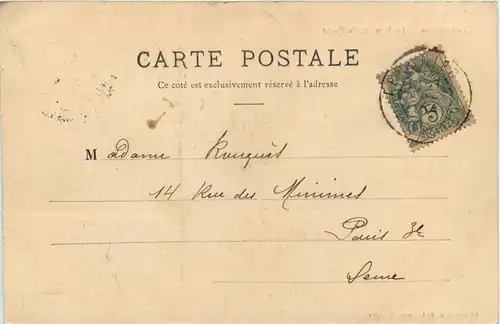 CARTE POSTALE
Ce côté est exclusivement réservé à l'adresse
Madame Rouguès
14 Rue des Minimes
Paris 3e
Seine
5